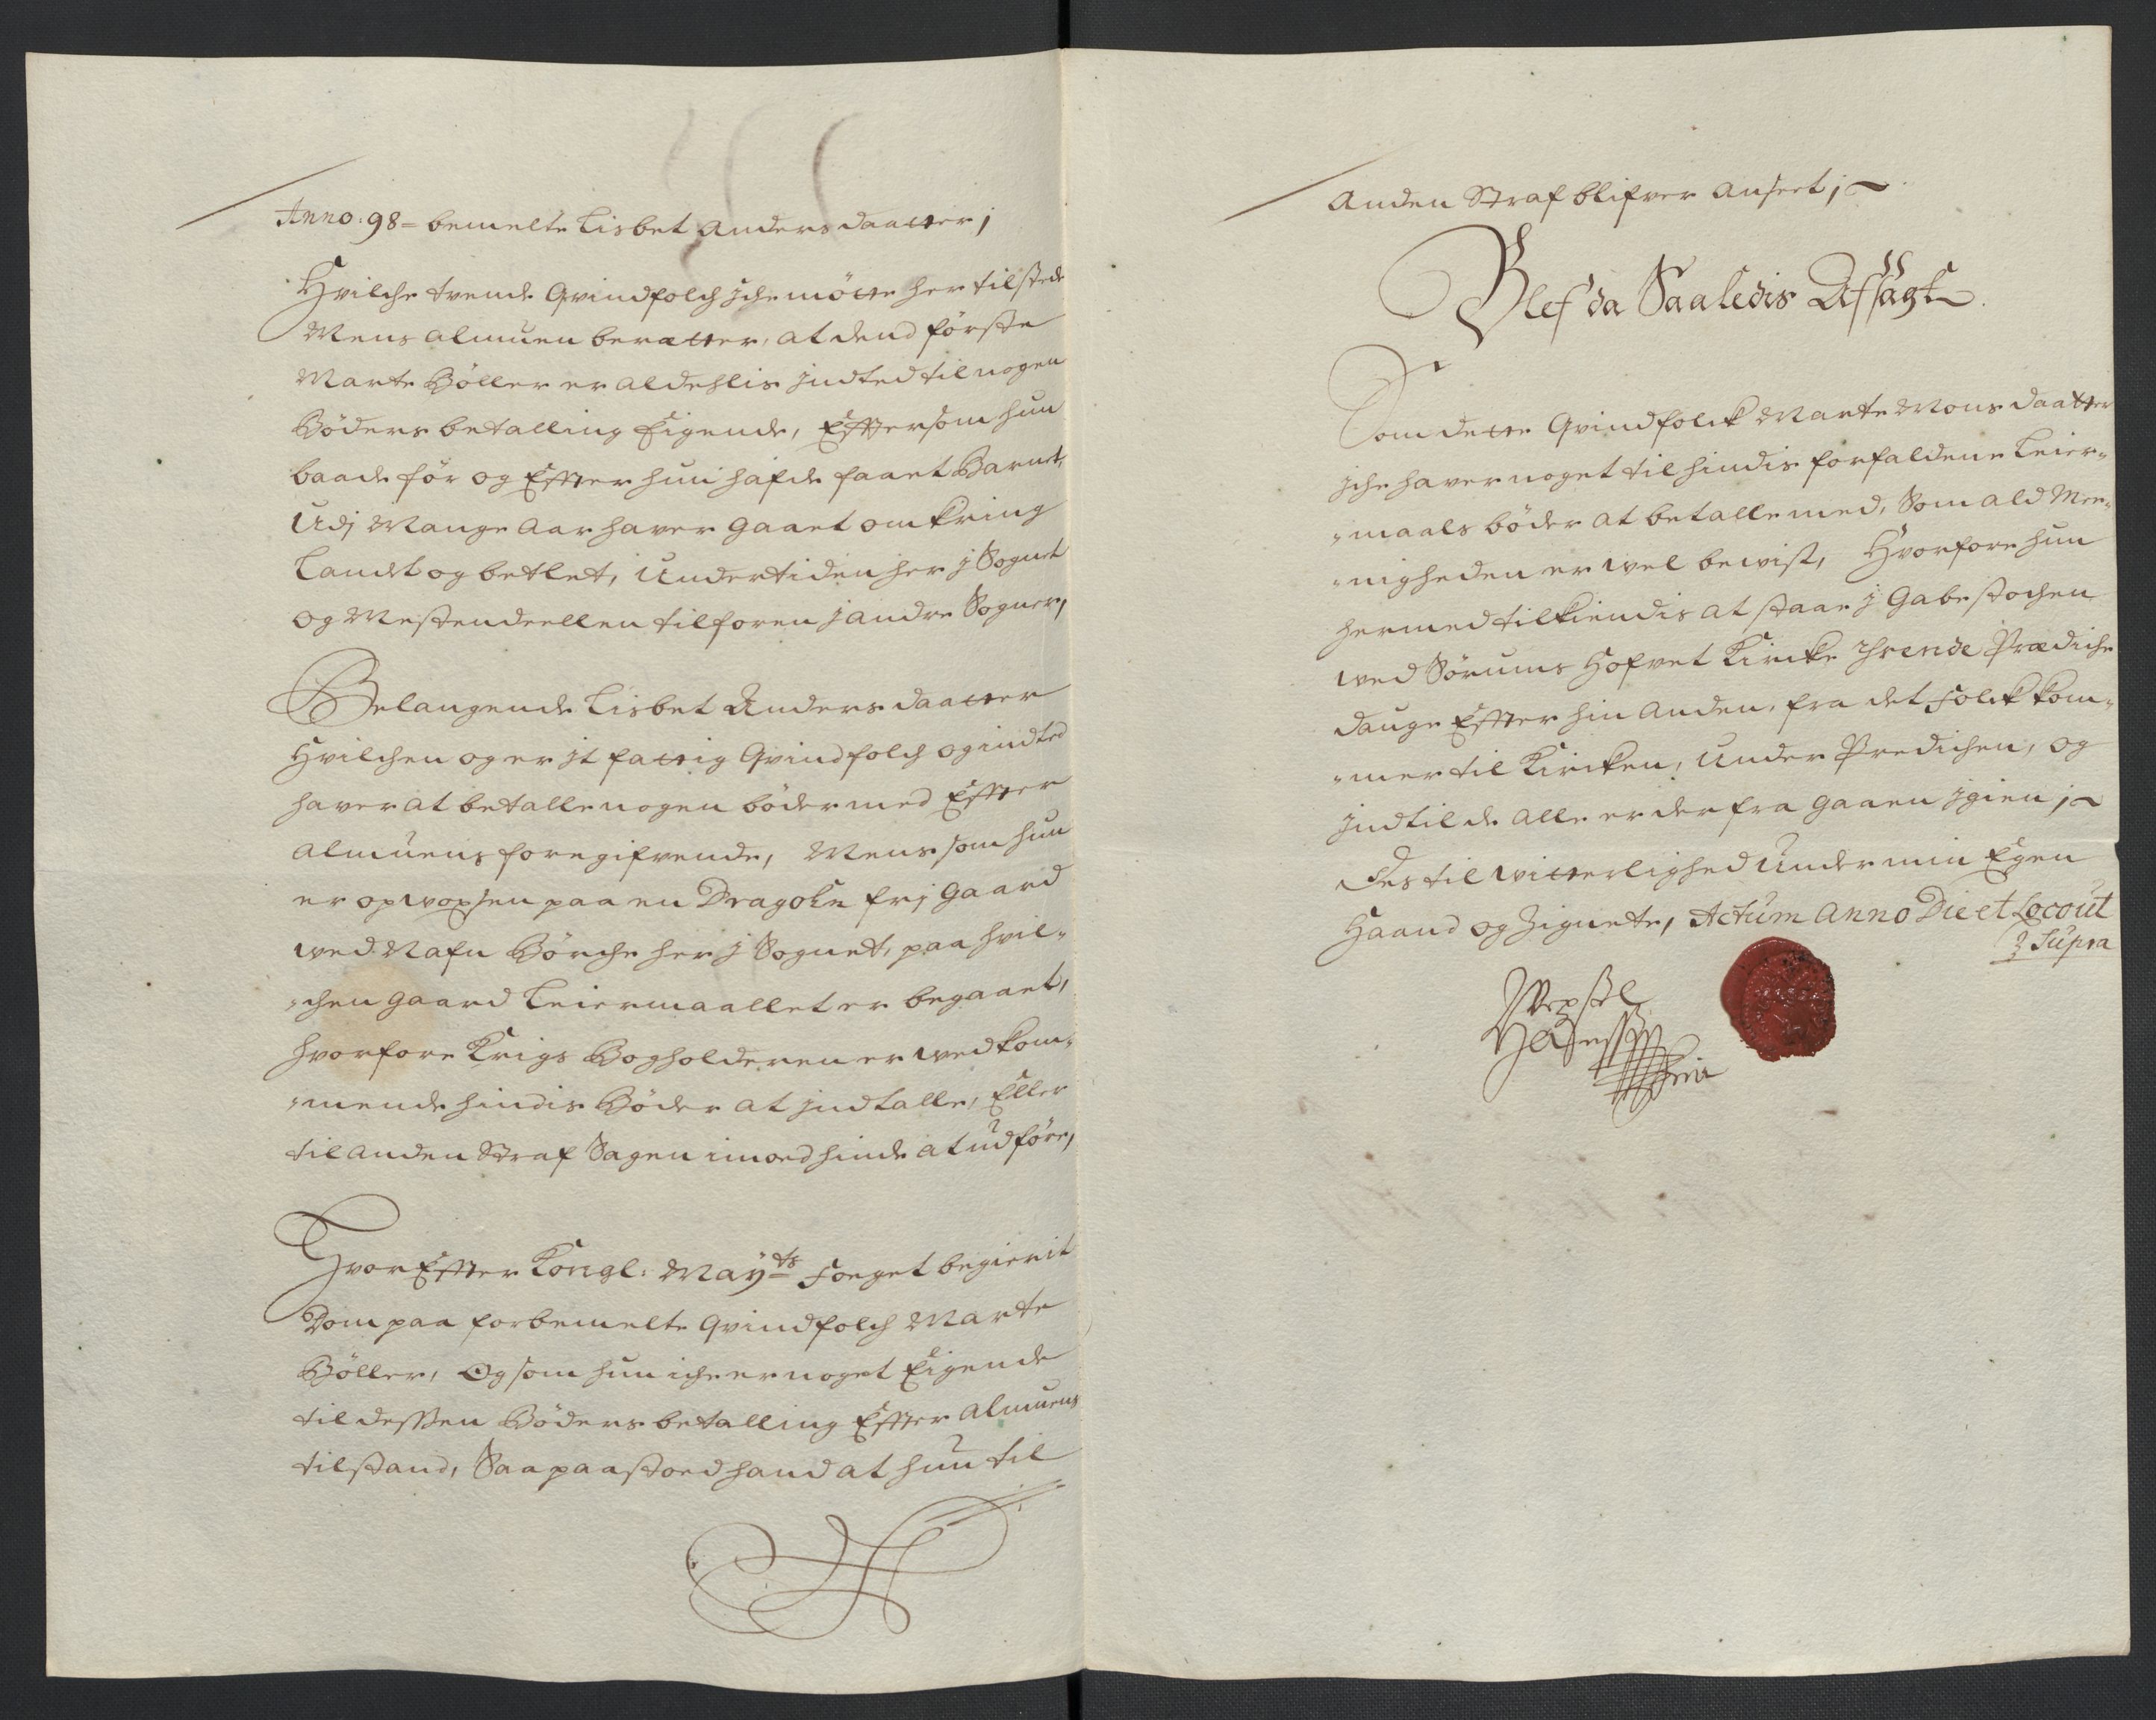 Anno: 98 = bemelte Lisbet Andersdaatter;
Hvilche tvende Qvindfolch iche møtte her tilstede
Mens almuen berætter, at dend første
Marte Bøller er aldehlis indted til nogen
Bøders betalling Eigende, Efftersom hun
baade før og Effter hun hafde faaet Barnet,
Udj Mange Aar haver gaaet omkring
Landet og betlet, Undertiden her j Sognet
og Mestendeellen tilforen j andre Sogner,
Belangende Lisbet Andersdaatter
Hvilchen og er it fattig Qvindfolch og indted
haver at betalle nogen bøder med Effter
Almuens foregifvende, Mens som hun
er opwoxsen paa en Dragoun frj gaard
wed Nafn Børche her j Sognet, paa hvil-
-chen gaard Leiermaallet er begaaet,
hvorfore Krigs Bogholderen er wedkom-
-mende hindis Bøder at indtalle, Eller
til anden Straf Sagen imoed hinde at udføre,
HvorEffter Kongl: Mayts Foeget begierit
Dom paa forbemelte Qvindfolch Marte
Bøller, Og som hun iche er noget Eigende
til dessen Bøders betalling Effter Almuens
tilstand, Saa paastoed hand at hun til
anden Straf blifver anseet;
Blef da Saaledis Afsagt
Som dette Qvindfolck Marte Monsdaatter
iche haver noget til hindis forfaldene Leier-
-maals bøder at betalle med, Som ald Me-
-nigheden er wel bewist, Hvorfore hun
hermed tilkiendis at staae j Gabestochen
wed Sørums Hofvet Kircke Thrende Prædiche
dauge Effter hin anden, fra det Folck kom-
-mer til Kircken, Under Predichen, og
indtil de alle er derfra gaaen igien;
Des til witterlighed Under min Egen
Haand og Zignete, Actum Anno Die et Loco ut
Supra